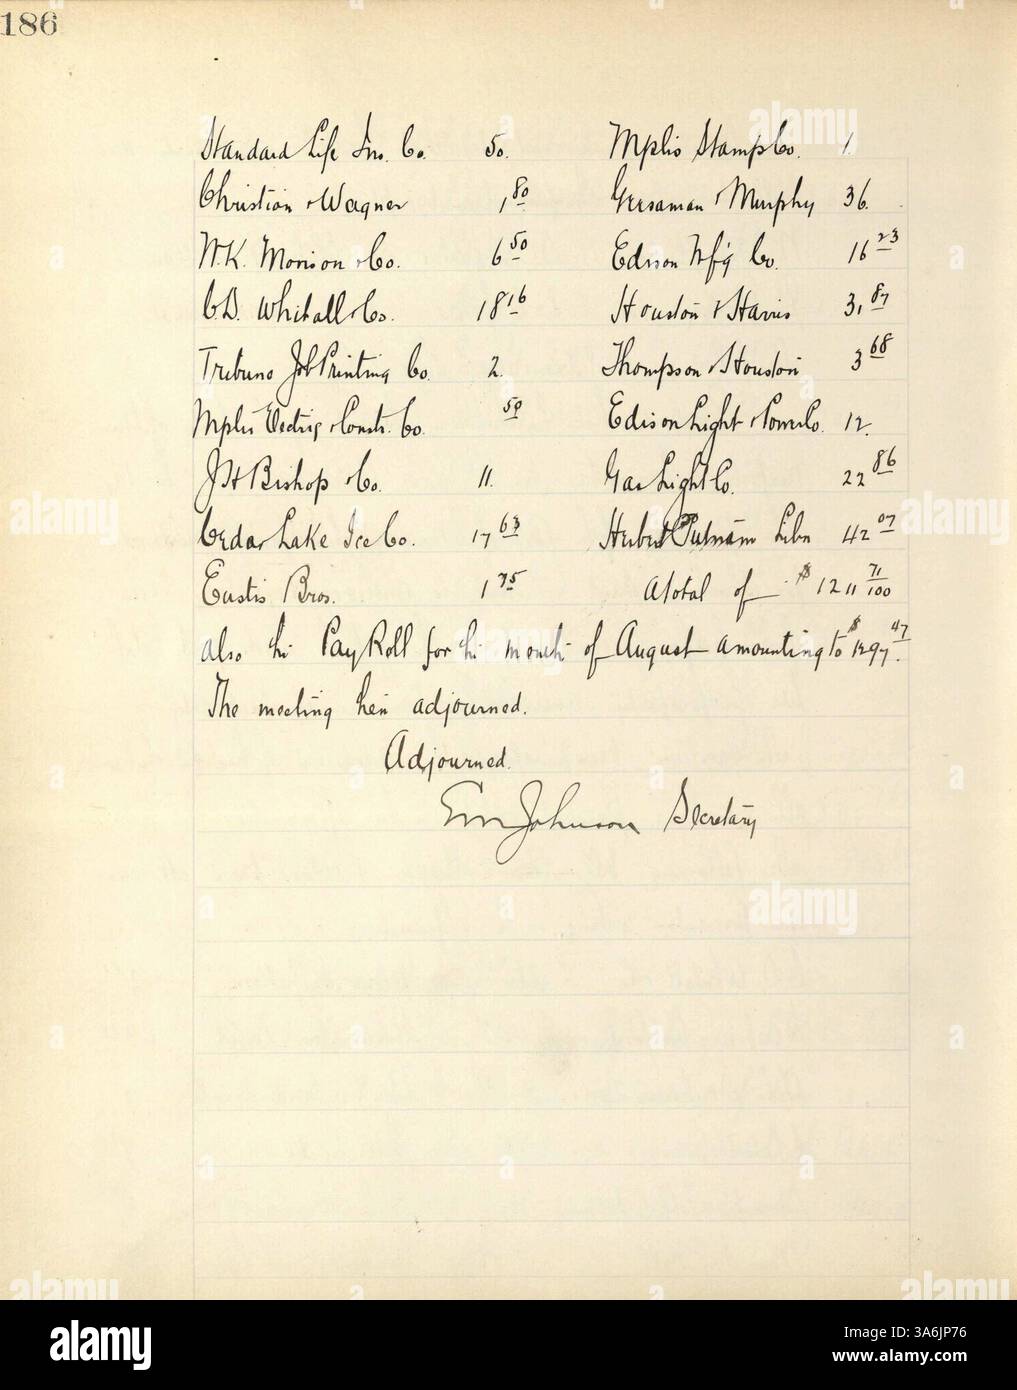 186
Standard Life Ins. Co. 50. Mplis Stamp Co. 1.
Christian & Wagner 1 80 Gressaman & Murphy 36.
W.K. Morison & Co. 6 50 Edison Mf'g Co. 16 23
C.D. Whitall & Co. 18 16 Houston & Harris 31 87
Tribune Job Printing Co. 2. Thompson & Houston 3 68
Mplis Electric & Constr. Co. 50 Edison Light & Power Co. 12.
J H Bishop & Co. 11. Gas Light Co. 22 86
Cedar Lake Ice Co. 17 63 Herbert Putnam Libn 42 07
Eustis Bros. 1 75 A total of $1211 71/100
also the Pay Roll for the month of August amounting to $1297.47
The meeting then adjourned.
Adjourned.
EmJohnson Secretary
alamy
Image ID: 3A6JP76
www.alamy.com